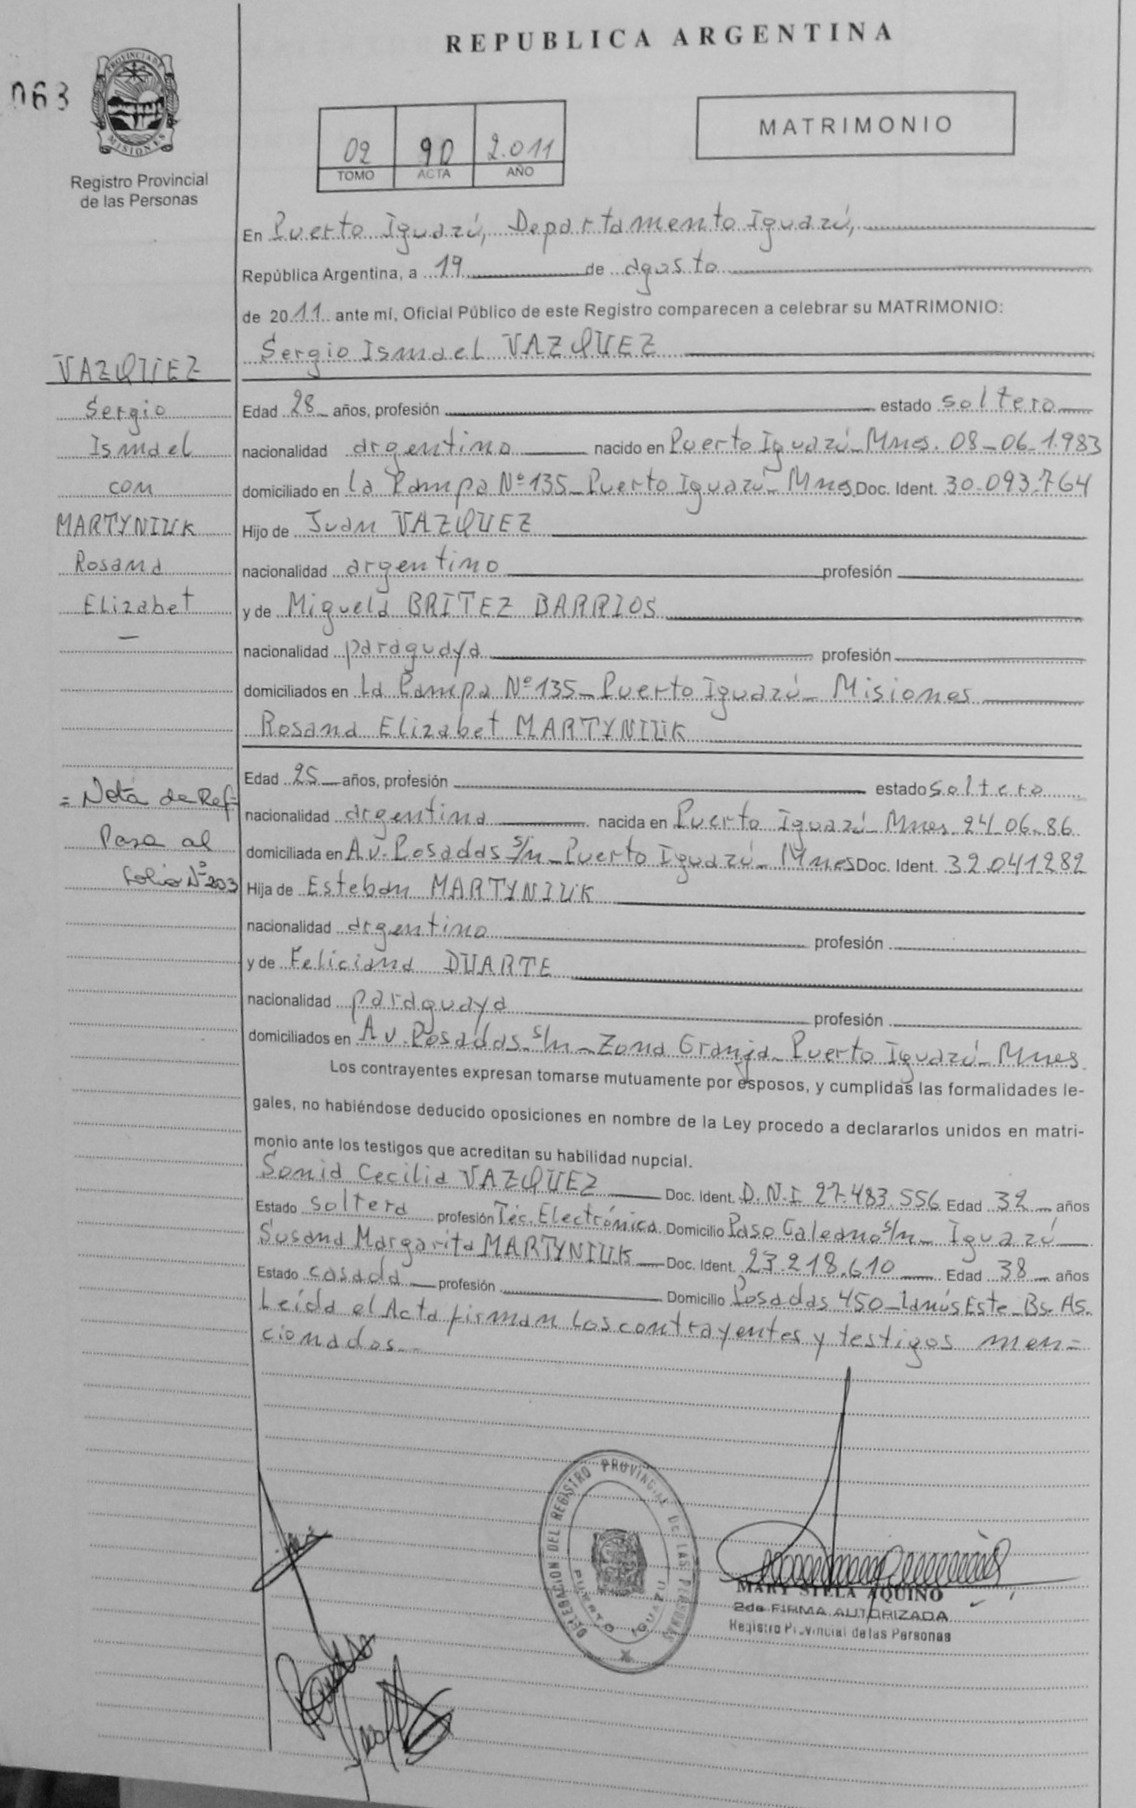 REPUBLICA ARGENTINA
063
PROVINCIA DE
MISIONES
Registro Provincial
de las Personas
02 90 2.011
TOMO ACTA AÑO
MATRIMONIO
En Puerto Iguazú, Departamento Iguazú,
República Argentina, a 19 de agosto
de 2011 ante mí, Oficial Público de este Registro comparecen a celebrar su MATRIMONIO:
Sergio Ismael VAZQUEZ
VAZQUEZ
Sergio
Ismael
con
MARTYNIUK
Rosana
Elizabet
Edad 28 años, profesión estado soltero
nacionalidad argentino nacido en Puerto Iguazú_Mnes. 08_06_1.983
domiciliado en La Pampa Nº135_Puerto Iguazú_Mnes Doc. Ident. 30.093.764
Hijo de Juan VAZQUEZ
nacionalidad argentino profesión
y de Miguela BRITEZ BARRIOS
nacionalidad paraguaya profesión
domiciliados en La Pampa Nº135_Puerto Iguazú_Misiones
Rosana Elizabet MARTYNIUK
= Nota de Ref=
Pasa al
folio Nº203
Edad 25 años, profesión estado soltero
nacionalidad argentina nacida en Puerto Iguazú_Mnes_24.06.86
domiciliada en Av.Posadas s/n_Puerto Iguazú_Mnes Doc. Ident. 32.041.282
Hija de Esteban MARTYNIUK
nacionalidad argentino profesión
y de Feliciana DUARTE
nacionalidad paraguaya profesión
domiciliados en Av.Posadas_s/n_Zona Granja_Puerto Iguazú_Mnes.
Los contrayentes expresan tomarse mutuamente por esposos, y cumplidas las formalidades le-
gales, no habiéndose deducido oposiciones en nombre de la Ley procedo a declararlos unidos en matri-
monio ante los testigos que acreditan su habilidad nupcial.
Sonia Cecilia VAZQUEZ Doc. Ident. D.N.I 27.483.556 Edad 32 años
Estado soltera profesión Téc.Electrónica Domicilio Paso Galeano s/n_Iguazú
Susana Margarita MARTYNIUK Doc. Ident. 23.218.610 Edad 38 años
Estado casada profesión Domicilio Posadas 450_Lanús Este_Bs.As.
Leída el Acta firman los contrayentes y testigos men=
cionados.
DELEGACION DEL REGISTRO PROVINCIAL DE LAS PERSONAS
PUERTO IGUAZU
MARY STELA AQUINO
2da FIRMA AUTORIZADA
Registro Provincial de las Personas